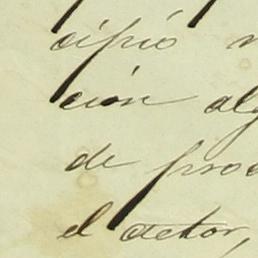 cipió
ción alg
de proc
el actor,